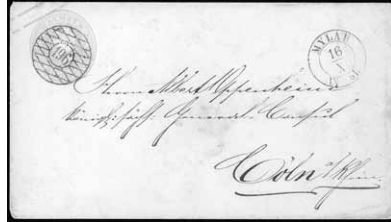 196
MYLAU
16
X
Herrn Albert Oppenheim
Königl. sächs. General-Consul
Cöln a/Rhein